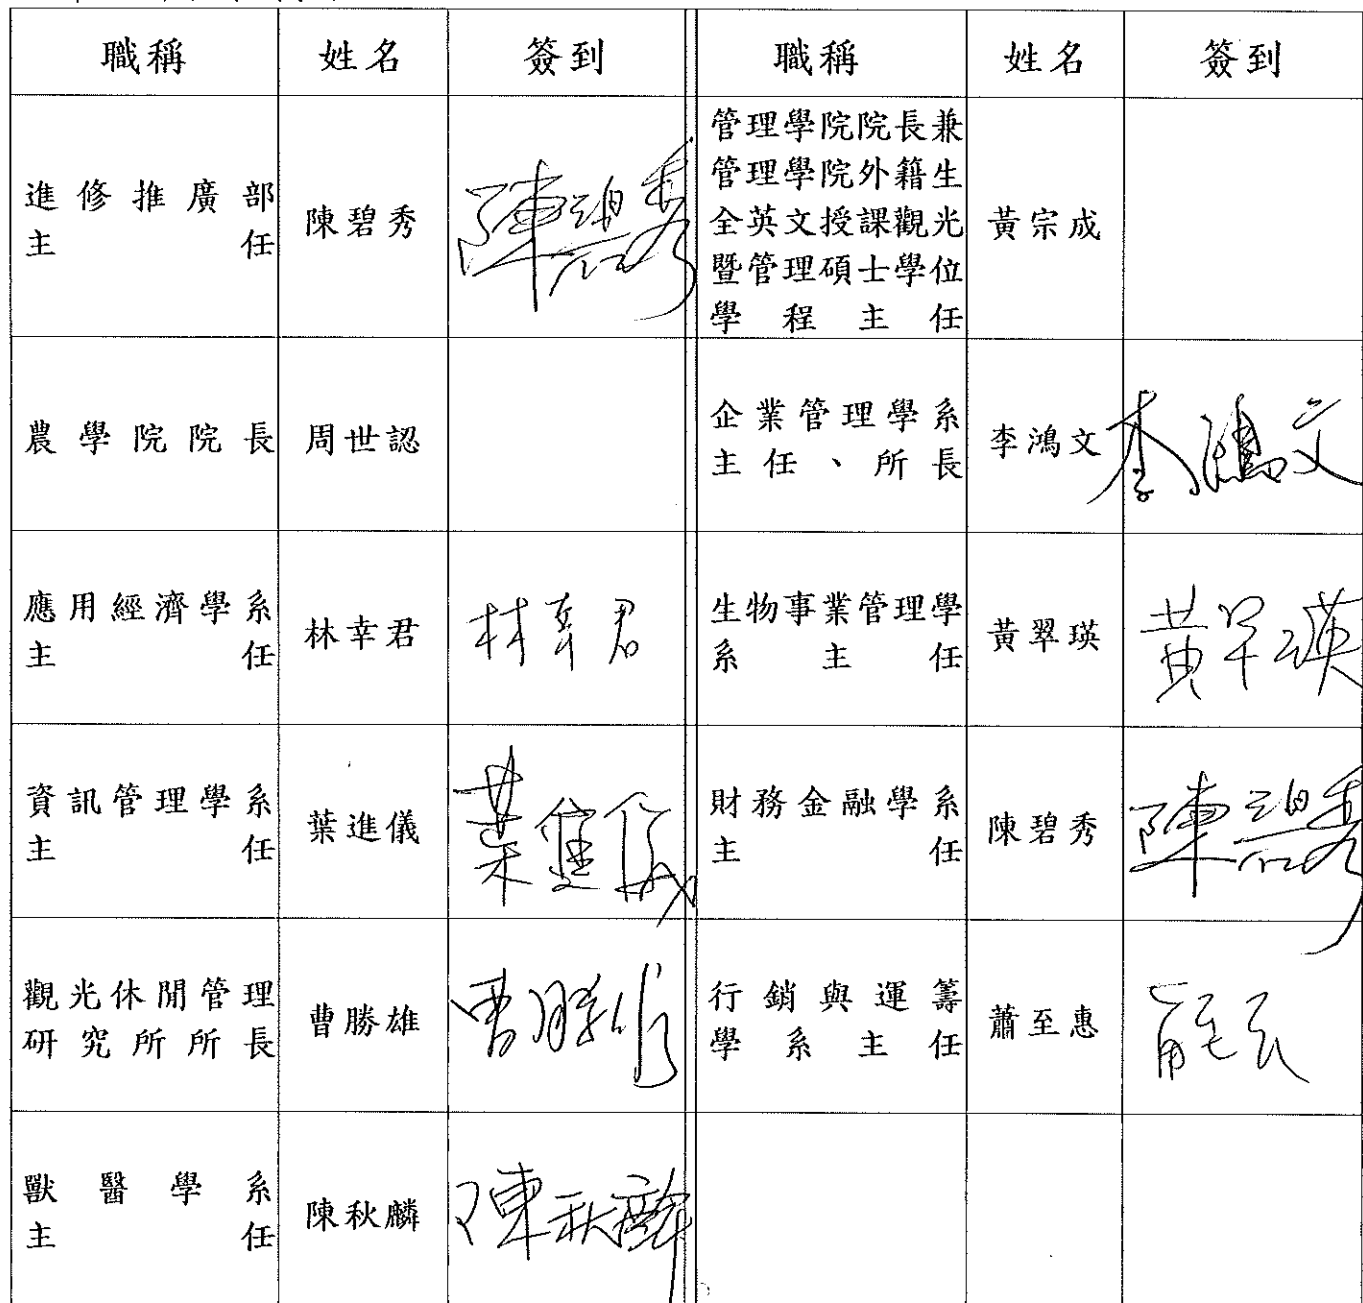 職稱 姓名 簽到 職稱 姓名 簽到
進修推廣部
主任
陳碧秀
陳碧秀
管理學院院長兼
管理學院外籍生
全英文授課觀光
暨管理碩士學位
學程主任
黃宗成
農學院院長
周世認
企業管理學系
主任、所長
李鴻文
李鴻文
應用經濟學系
主任
林幸君
林幸君
生物事業管理學
系主任
黃翠瑛
黃翠瑛
資訊管理學系
主任
葉進儀
葉進儀
財務金融學系
主任
陳碧秀
陳碧秀
觀光休閒管理
研究所所長
曹勝雄
曹勝雄
行銷與運籌
學系主任
蕭至惠
獸醫學系
主任
陳秋麟
陳秋麟